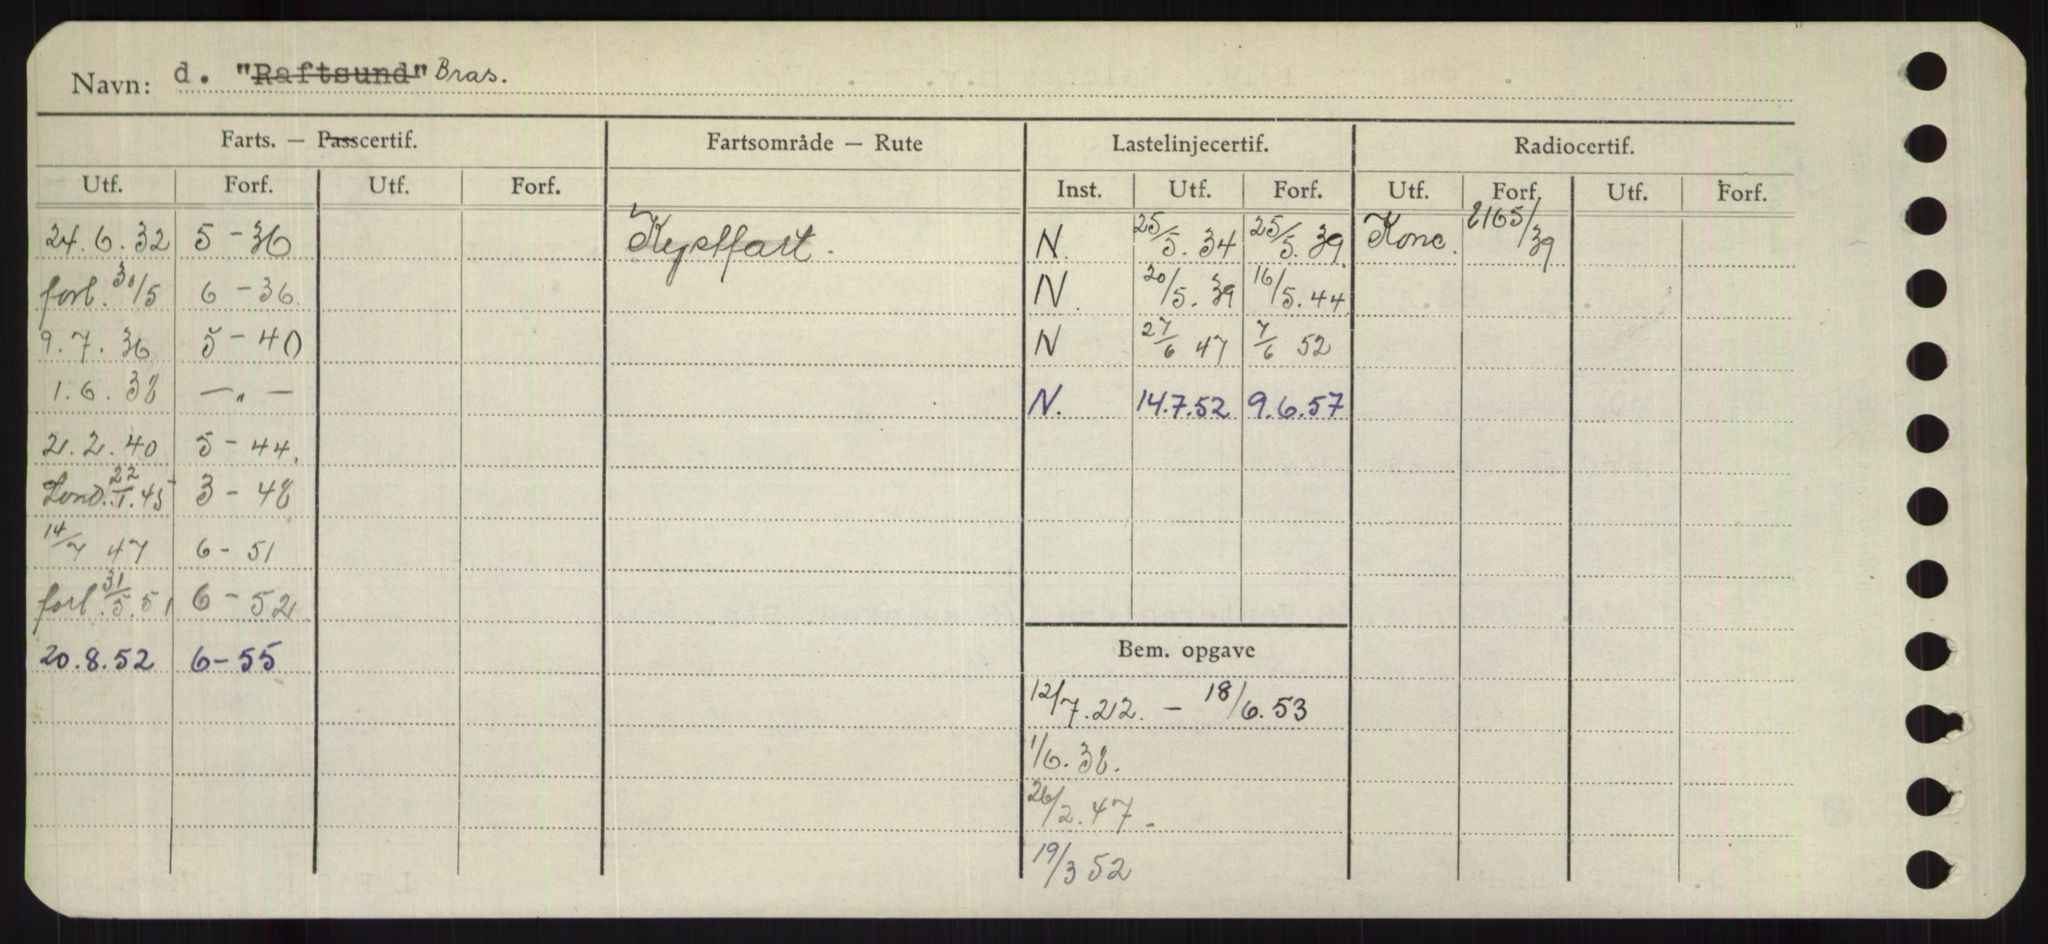 Navn: d. "Raftsund" Bras.
Farts. — Passcertif. Fartsområde — Rute Lastelinjecertif. Radiocertif.
Utf. Forf. Utf. Forf. Inst. Utf. Forf. Utf. Forf. Utf. Forf.
24.6.32 5-36 Kystfart. N. 25/5.34 25/5.39 Konc. 2165/39
forl. 30/5 6-36. N. 20/5.39 16/5.44
9.7.36 5-40 N 27/6 47 7/6 52
1.6.38 —"— N. 14.7.52 9.6.57
21.2.40 5-44.
Lond. 22/1.45 3-48
14/7 47 6-51
forl. 31/5.51 6-52.
20.8.52 6-55
Bem. opgave
12/7.22. - 18/6.53
1/6.38.
26/2.47.
19/3 52